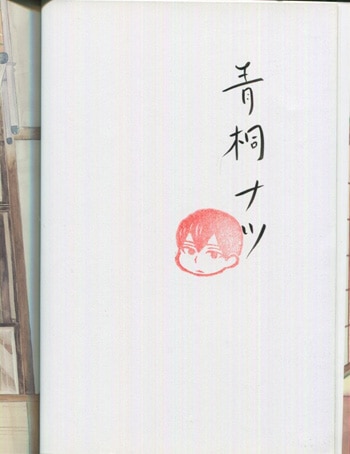 青桐ナツ